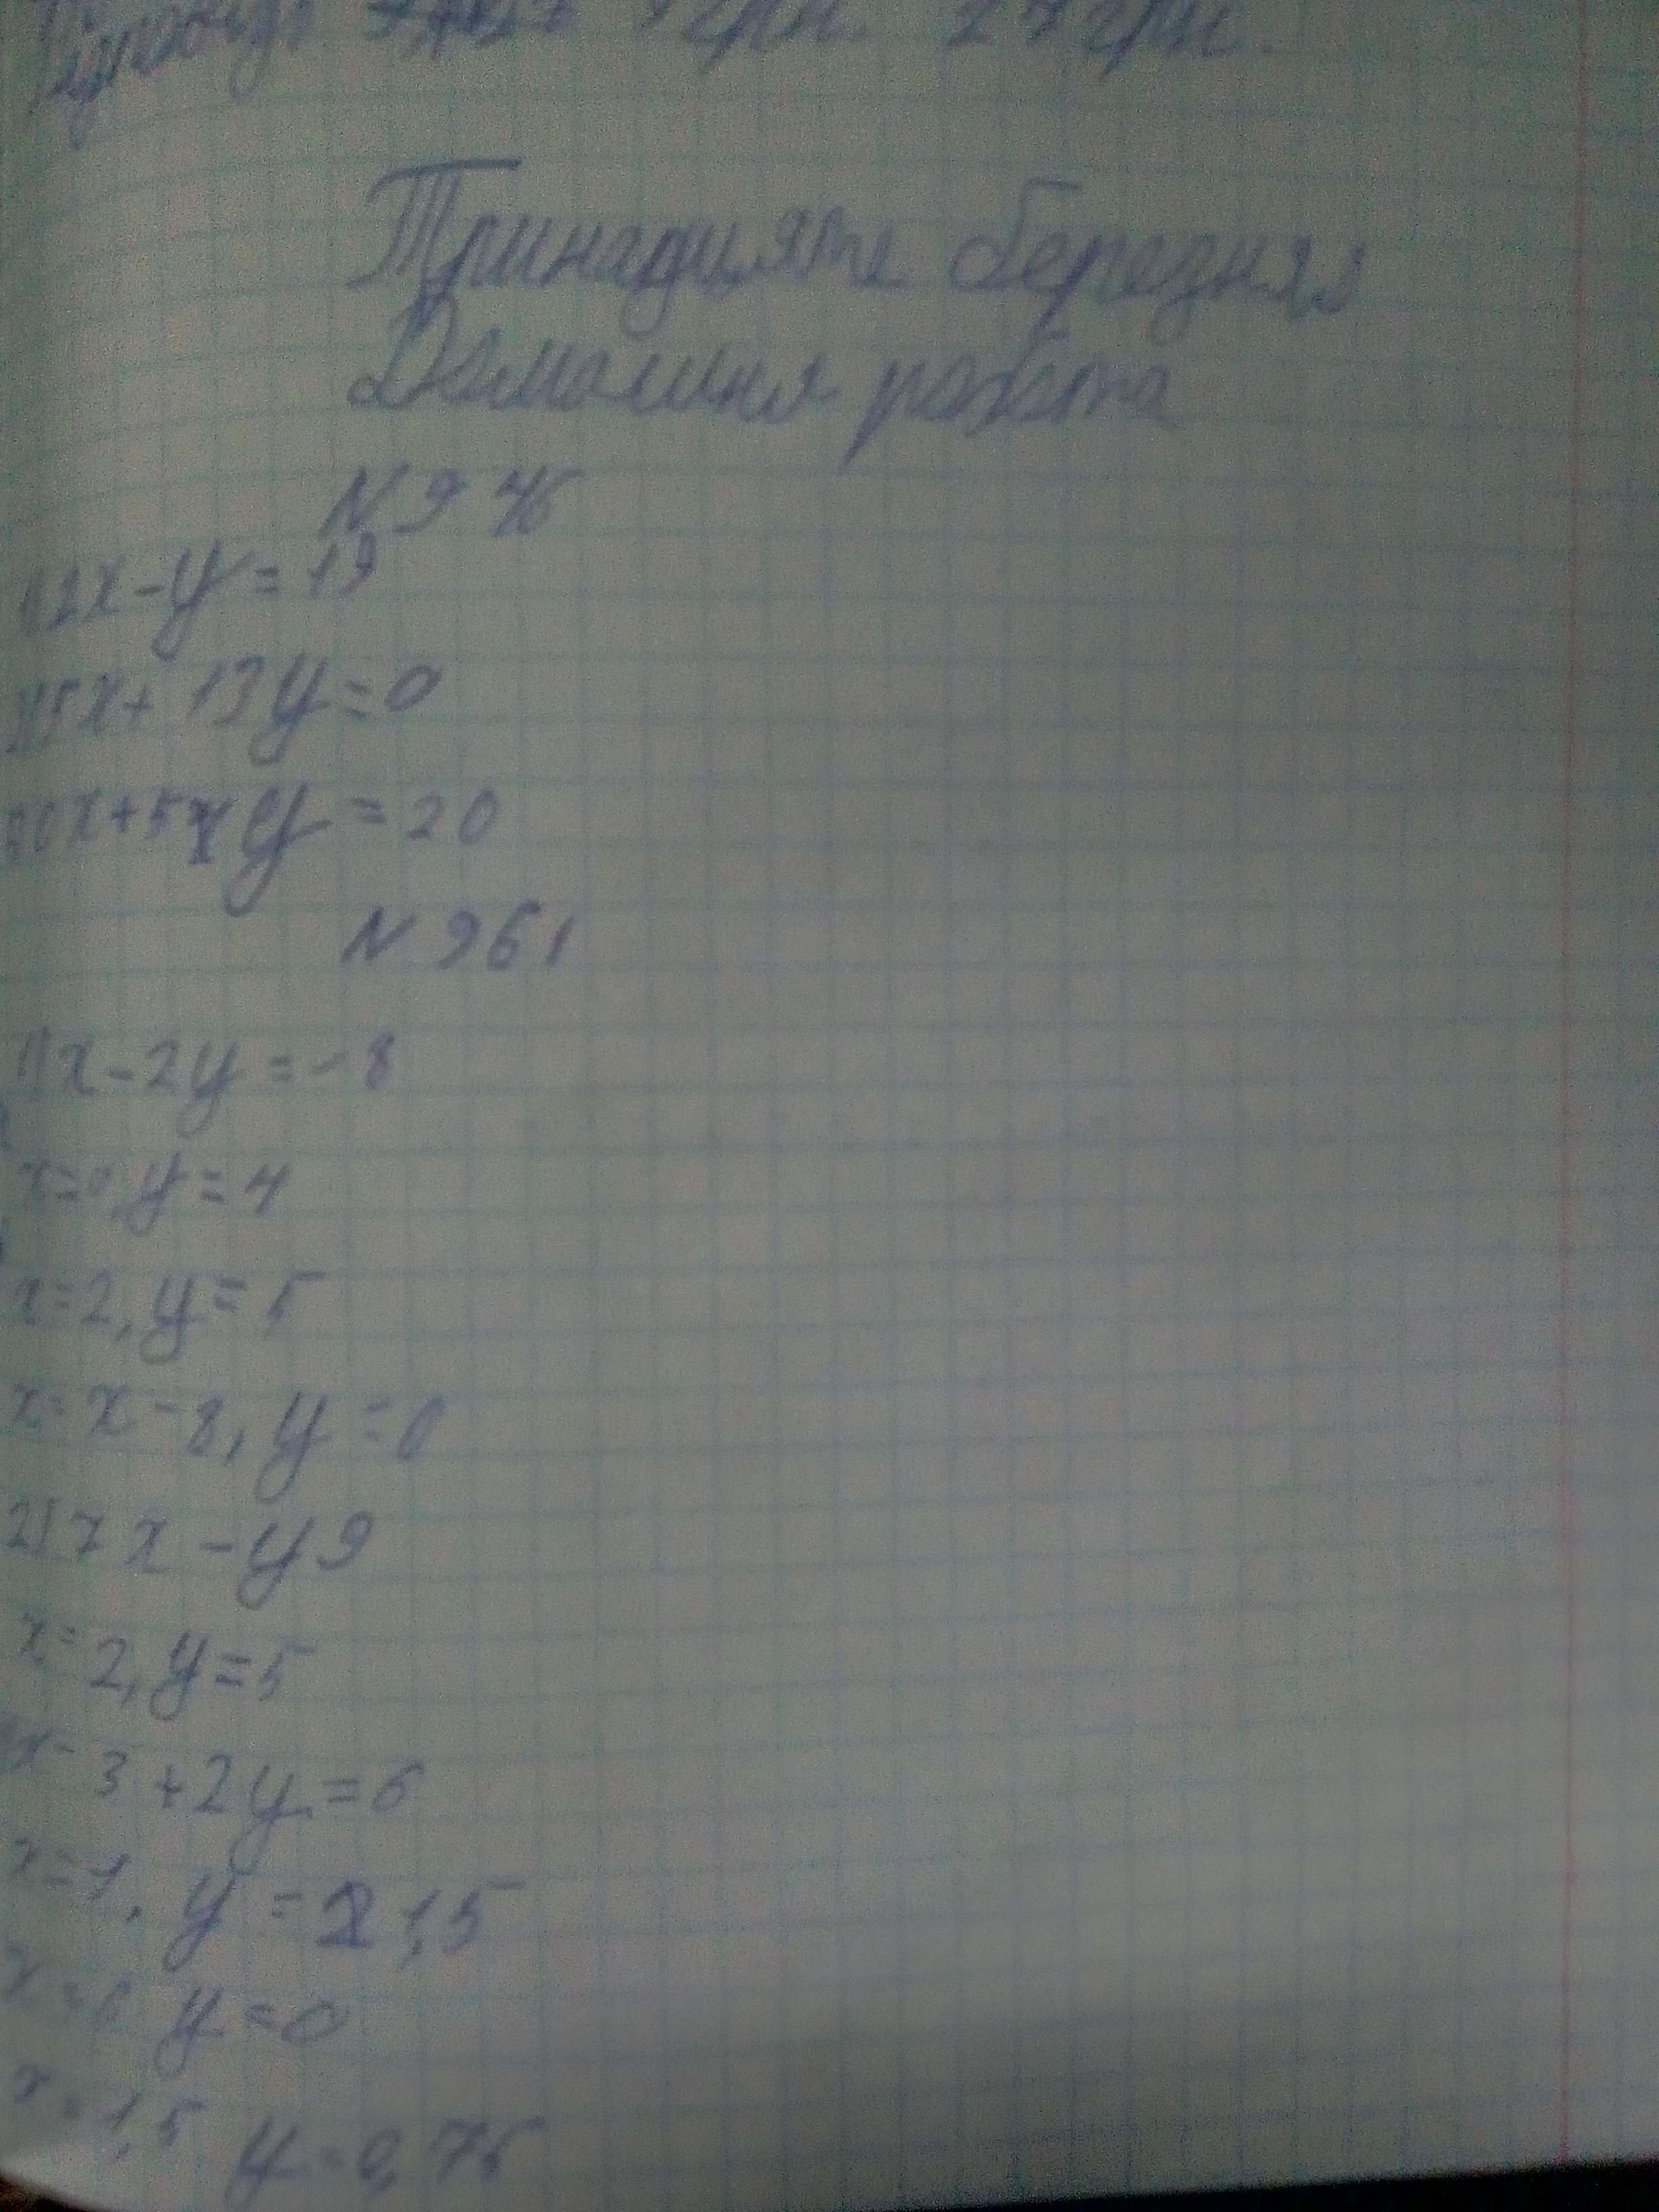 грн. 27 грн.
Тринадцяте березня
Домашня робота
N 946
1) 2x - y = 19
15x + 13y = 0
x + 5xy = 20
N 961
1) x - 2y = -8
x = 0, y = 4
x = 2, y = 5
x = x - 8, y = 0
2) 7x - y 9
x = 2, y = 5
x - 3 + 2y = 6
x = 1, y = 1,5
x = 0 y = 0
x = 1,5 y = 0,75